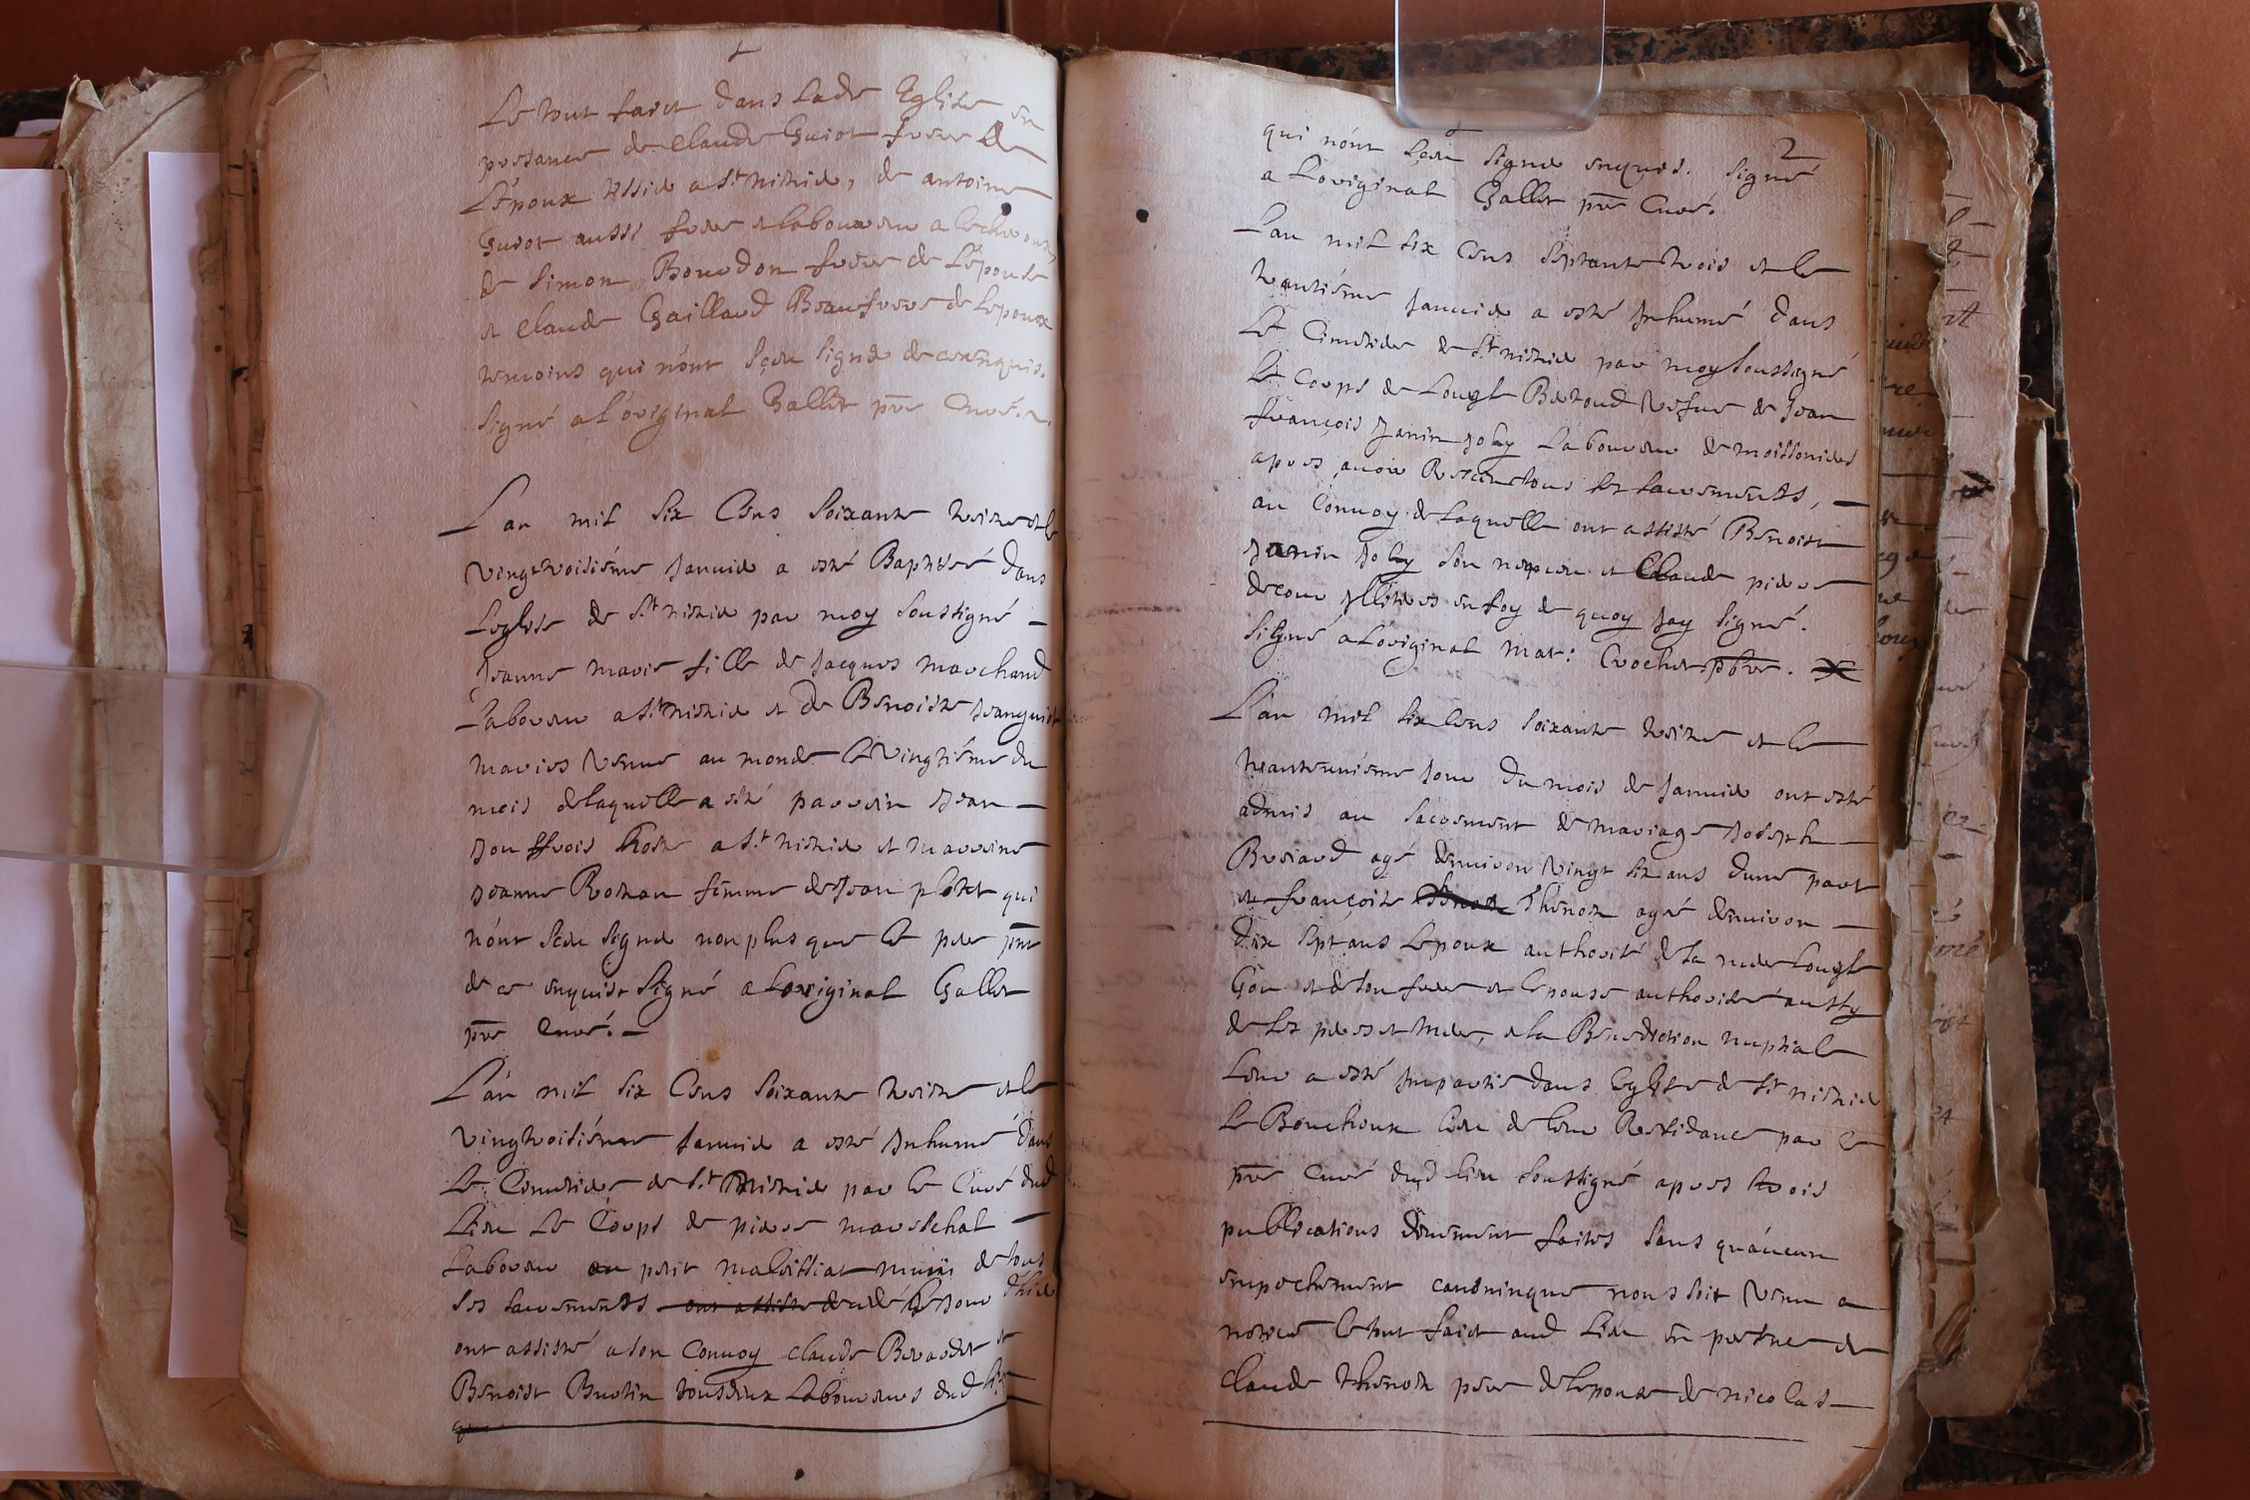 Le tout faict dans lade Eglise en
presance de claude Guiot frere de
L'époux Assié a St nizié, de antoine
Guiot aussi frere et laboureur a
de simon Bourdon frere de L'épouse
et claude Gaillard Beaufrere de Lepoux
temoins qui n'ont sçeu signer de ce enquis.
signé a l'original Gallet pre Curé.
L'an mil six Cens soixante treize et le
vingtroisiéme Janvier a esté Baptisé dans
Leglise de St nizié par moy soussigné
Jeanne marie fille de Jacques marchand
Laboureur a St nizié et de Benoiste
mariés venue au monde le vingtiéme du
mois de laquelle a esté parrain Jean
hoste a St nizié et marraine
Jeanne femme de Jean qui
n'ont sçeu signer non plus que le pere pnt
de ce enquis signé a Loriginal Gallet
pre Curé.
L'an mil six Cens soixante treize et le
vingtroisiéme Janvier a esté Inhumé dans
Le Cimetiere de St Nizié par le Curé dud
Lieu Le Corps de pierre mareschal
Laboureur au petit malvissiat muni de tous
ses sacrements ont assisté le Jour d'hier
ont assisté a son Convoy claude Berardet et
Benoist Burtin tousdeux Laboureurs dud lieu
qui
2
qui n'ont sçeu signer enquis. signé
a L'original Gallet pre Curé.
L'an mil six Cens septante trois et le
trantiéme Janvier a esté Inhumé dans
Le Cimetiere de St nizié par moy soussigné
Le Corps de Berthoud vefve de Jean
françois Janin Joly Laboureur de moissonier
apres avoir Receu tous les sacrements,
au Convoy de laquelle ont assisté Benoist
Janin Joly son nepveu et Claude pierre
en foy de quoy Jay signé.
signé a L'original mar: Crochet pbre.
L'an mil six Cens soixante treize et le
tranteuniéme Jour du mois de Janvier ont esté
admis au sacrement de mariage Joseph
agé denviron vingt six ans dune part
et françoise Thenoz agé denviron
dix sept ans Lepoux authorisé de sa mere
et de son frere et lepouse authorisée aussy
de ses pere et mere, et la Benediction nuptiale
Leur a esté Impartie dans leglise de St nizié
Le Bouchoux lieu de leur Residance par le
pre Curé dud lieu soussigné apres trois
publications deuement faites sans qu'aucun
empechement canoninque nous soit venu a
notice le tout faict aud Lieu en presence de
claude Thenoz pere de lepouse de nicolas